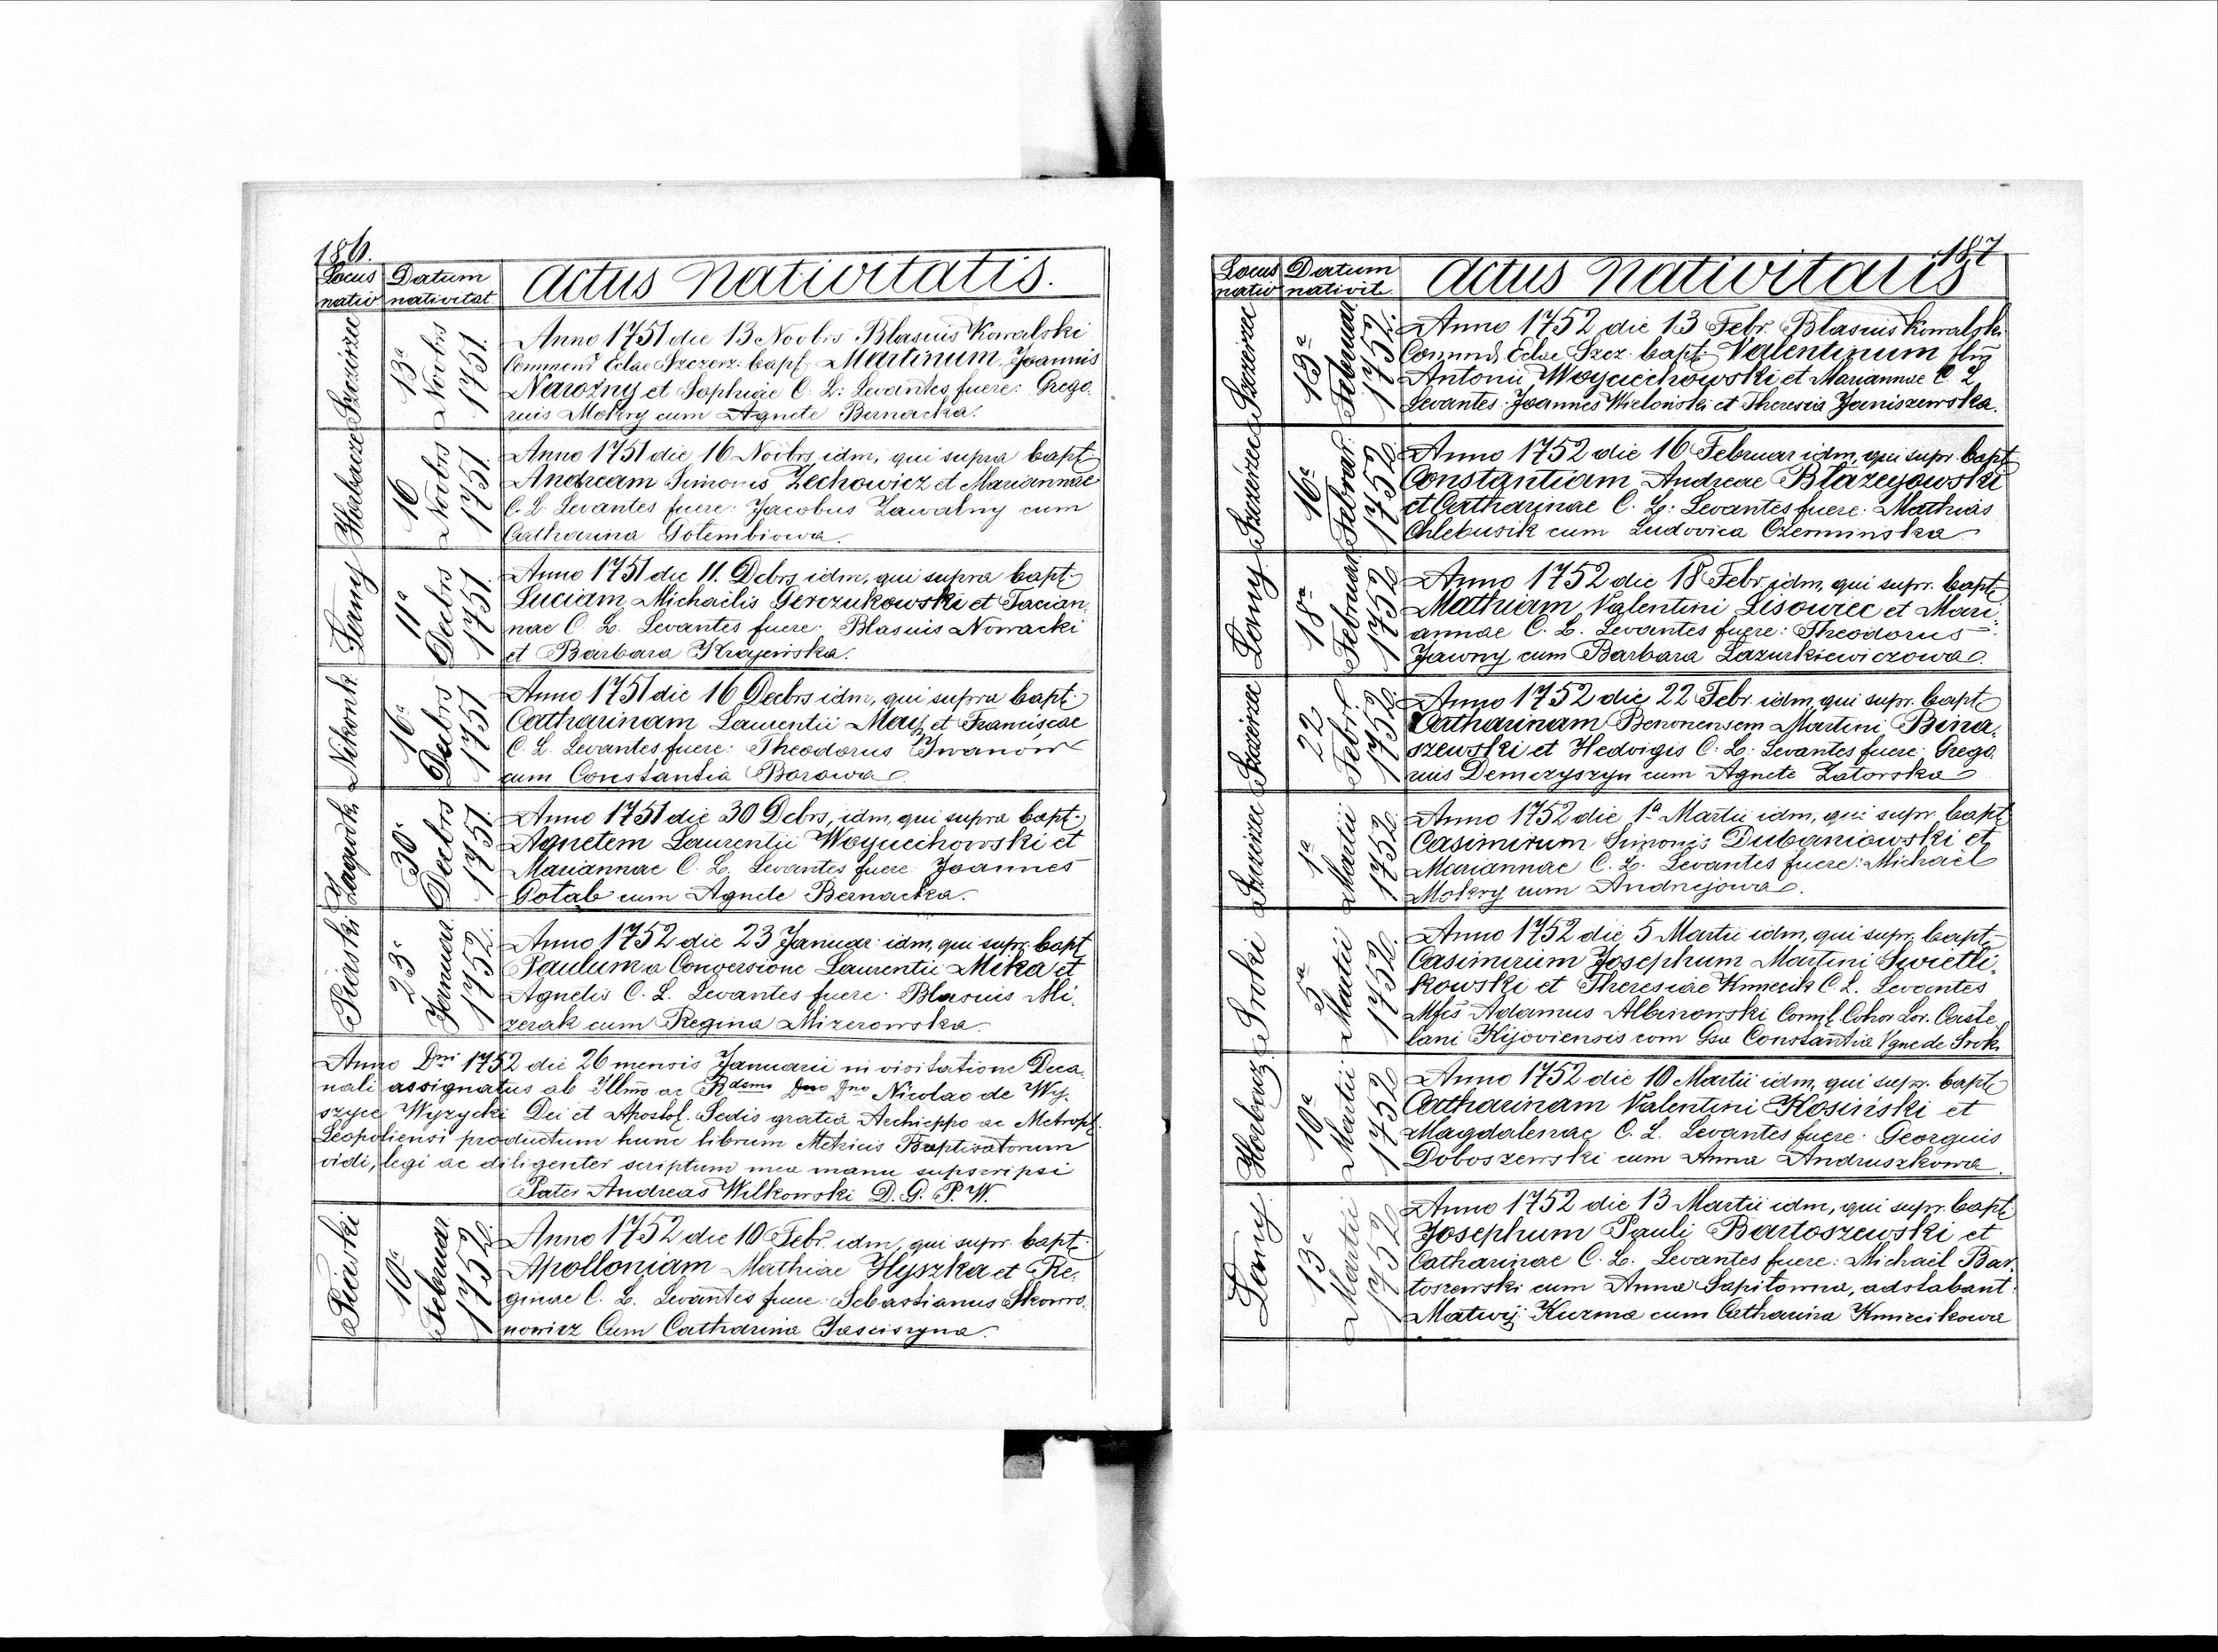 186.
Locus nativ
Datum nativitat
Actus Nativitatis.
Szczirzec
13ª Novbrs 1751.
Anno 1751 die 13 Novbrs Blasius Kowalski
Commend Eclae Szczerz: bapt: Martinum Joannis
Narożny et Sophiae C. L: Levantes fuere: Grego.
rius Mokry cum Agnete Bernacka.
Horbacze
16 Novbrs 1751.
Anno 1751 die 16 Novbrs idm, qui supra bapt
Andream Simonis Zechowicz et Mariannae
C. L. Levantes fuere: Jacobus Zawalny cum
Catharina Gołembiowa.
Łany
11ª Decbrs 1751.
Anno 1751 die 11. Debrs idm, qui supra bapt
Luciam Michaelis Gerczukowski et Tacian.
nae C. L. Levantes fuere: Blasius Nowacki
et Barbara Krajewska.
Nikonk.
16ª Decbrs 1751
Anno 1751 die 16 Decbrs idm, qui supra bapt:
Catharinam Laurentii May et Franciscae
C. L. Levantes fuere: Theodorus Iwanow
cum Constantia Borowa
30ª Decbrs 1751.
Anno 1751 die 30 Debrs, idm, qui supra bapt.
Agnetem Laurentii Woyciechowski et
Mariannae C. L. Levantes fuere Joannes
Gołab cum Agnete Bernacka.
Piarski
23ª Januar. 1752.
Anno 1752 die 23 Januar: idm, qui supr. bapt
Paulum a Conversione Laurentii Mika et
Agnetis C. L. Levantes fuere: Blasius Mi.
zerak cum Regina Mizerowska.
Anno Dni 1752 die 26 mensis Januarii in visitatione Deca.
nali assignatus ab Illmo ac Rdsmo Dno Dno Nicolao de Wy.
szyce Wyzycki Dei et Apostol. Sedis gratia Archieppo ac Metropl.
Leopoliensi productum hunc librum Metricis Baptisatorum
vidi, legi ac diligenter scriptum mea manu supscripsi
Pater Andreas Wilkowski D. G. P. W.
Piarski
10ª Februar 1752.
Anno 1752 die 10 Febr. idm, qui supr. bapt:
Apolloniam Mathiae Hyszka et Re.
ginae C. L. Levantes fuere: Sebastianus Skowro.
nowicz Cum Catharina Jasciszyna.
187
Locus nativ
Datum nativit.
Actus Nativitatis
Szczirzec
13ª Februar. 1752.
Anno 1752 die 13 Febr. Blasius Kowalski.
Commd, Eclae Szcz. bapt: Valentinum flm
Antonii Woyciechowski et Mariannae C. L
Levantes: Joannes Wieloński et Theresia Janiszewska.
Szczirzec
16ª Februar. 1752.
Anno 1752 die 16 Februar idm, qui supr. bapt
Constantiam Andreae Błażejowski
et Catharinae C. L: Levantes fuere: Mathias
Chlebusik cum Ludovica Czerminska
Łany
18ª Februar. 1752
Anno 1752 die 18 Febr. idm, qui supr. bapt
Mathiam Valentini Lisowiec et Mari.
annae C. L. Levantes fuere: Theodorus
Jawny cum Barbara Łazurkiewiczowa.
Szczirzec
22 Febr. 1752.
Anno 1752 die 22 Febr. idm, qui supr. bapt
Catharinam Bononensem Martini Bina.
szewski et Hedvigis C. L: Levantes fuere: Grego.
rius Demczyszyn cum Agnete Zatorska
Szczirzec
1ª Martii 1752.
Anno 1752 die 1ª Martii idm, qui supr. bapt
Casimirum Simonis Dubaniowski et
Mariannae C. L. Levantes fuere: Michael
Mokry cum Andrejowa.
Sroki
5ª Martii 1752.
Anno 1752 die 5 Martii idm, qui supr. bapt
Casimirum Josephum Martini Swietli.
kowski et Theresiae Kmiecik C. L. Levantes
Mfis Adamus Albinowski Comil. Cohor Lor. Caste.
lani Kijoviensis com Gsa Constantia Vgne de Srok.
Horbacz
10ª Martii 1752
Anno 1752 die 10 Martii idm, qui supr. bapt
Catharinam Valentini Kosiński et
Magdalenae C. L. Levantes fuere: Georguis
Doboszewski cum Anna Andruszkowa.
Łany
13ª Martii 1752.
Anno 1752 die 13 Martii idm, qui supr. bapt
Josephum Pauli Bartoszewski et
Catharinae C. L. Levantes fuere: Michael Bar.
toszewski cum Anna Sapitowna, adstabant.
Matwij Kuzma cum Catharina Kmiecikowa